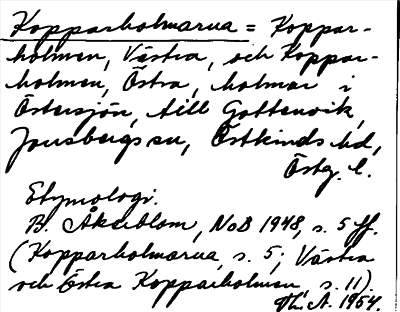 Kopparholmarna = Koppar-
holmen, Västra, och Koppar-
holmen, Östra, holmar i
Östersjön, till Gottenvik,
Jonsbergs sn, Östkinds hd,
Östg. l.
Etymologi.
B. Åkerblom, NoB 1948, s. 5 ff.
(Kopparholmarna, s. 5; Västra
och Östra Kopparholmen, s. 11).
Th. A. 1954.